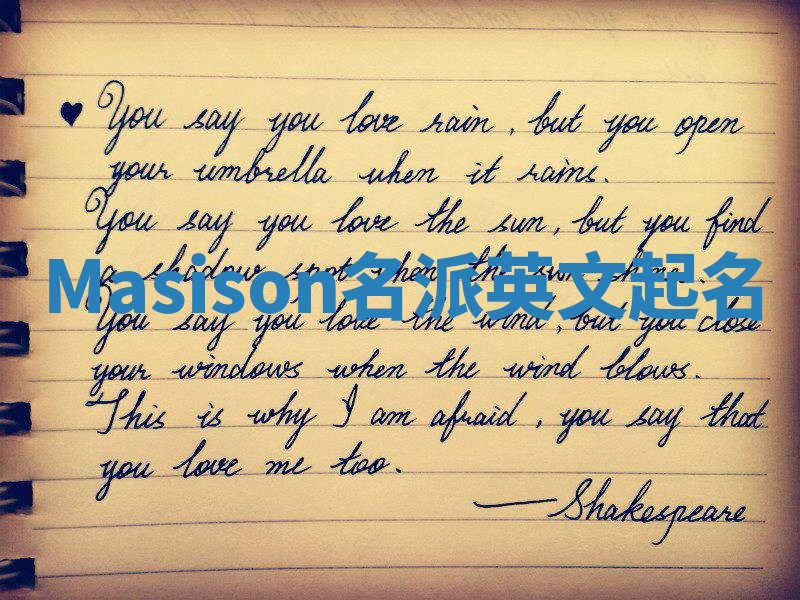 ♥ You say you love rain, but you open
your umbrella when it rains.
You say you love the sun, but you find
a shadow spot when the sun shine.
Masison名派英文起名
You say you love the wind, but you close
your windows when the wind blows.
This is why I am afraid, you say that
you love me too.
—Shakespeare